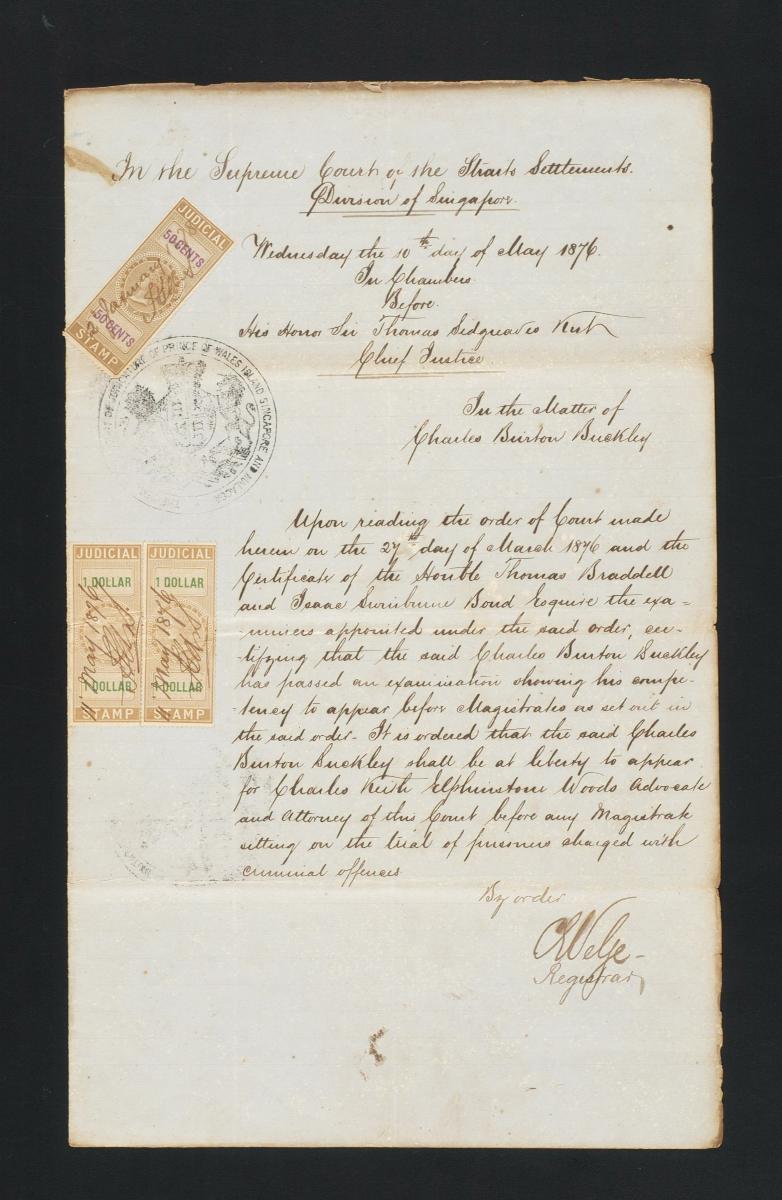 In the Supreme Court of the Straits Settlements.
Division of Singapore.
Wednesday the 10th day of May 1876.
In Chambers
Before.
His Honor Sir Thomas Sidgreaves Knt
Chief Justice
In the Matter of
Charles Burton Buckley
Upon reading the order of Court made
herein on the 27th day of March 1876 and the
Certificate of the Honble Thomas Braddell
and Isaac Swinburne Bond Esquire the exa=
=miners appointed under the said order, cer-
tifying that the said Charles Burton Buckley
has passed an examination showing his compe-
-tency to appear before Magistrates as set out in
the said order. It is ordered that the said Charles
Burton Buckley shall be at liberty to appear
for Charles Keith Elphinstone Woods Advocate
and Attorney of this Court before any Magistrate
sitting on the trial of prisoners charged with
criminal offences
By order
Registrar
JUDICIAL
50 CENTS
January
50 CENTS
STAMP
OF JUDICATURE OF PRINCE OF WALES ISLAND SINGAPORE AND MALACCA
JUDICIAL
1 DOLLAR
11 May 1876
1 DOLLAR
STAMP
JUDICIAL
1 DOLLAR
11 May 1876
1 DOLLAR
STAMP